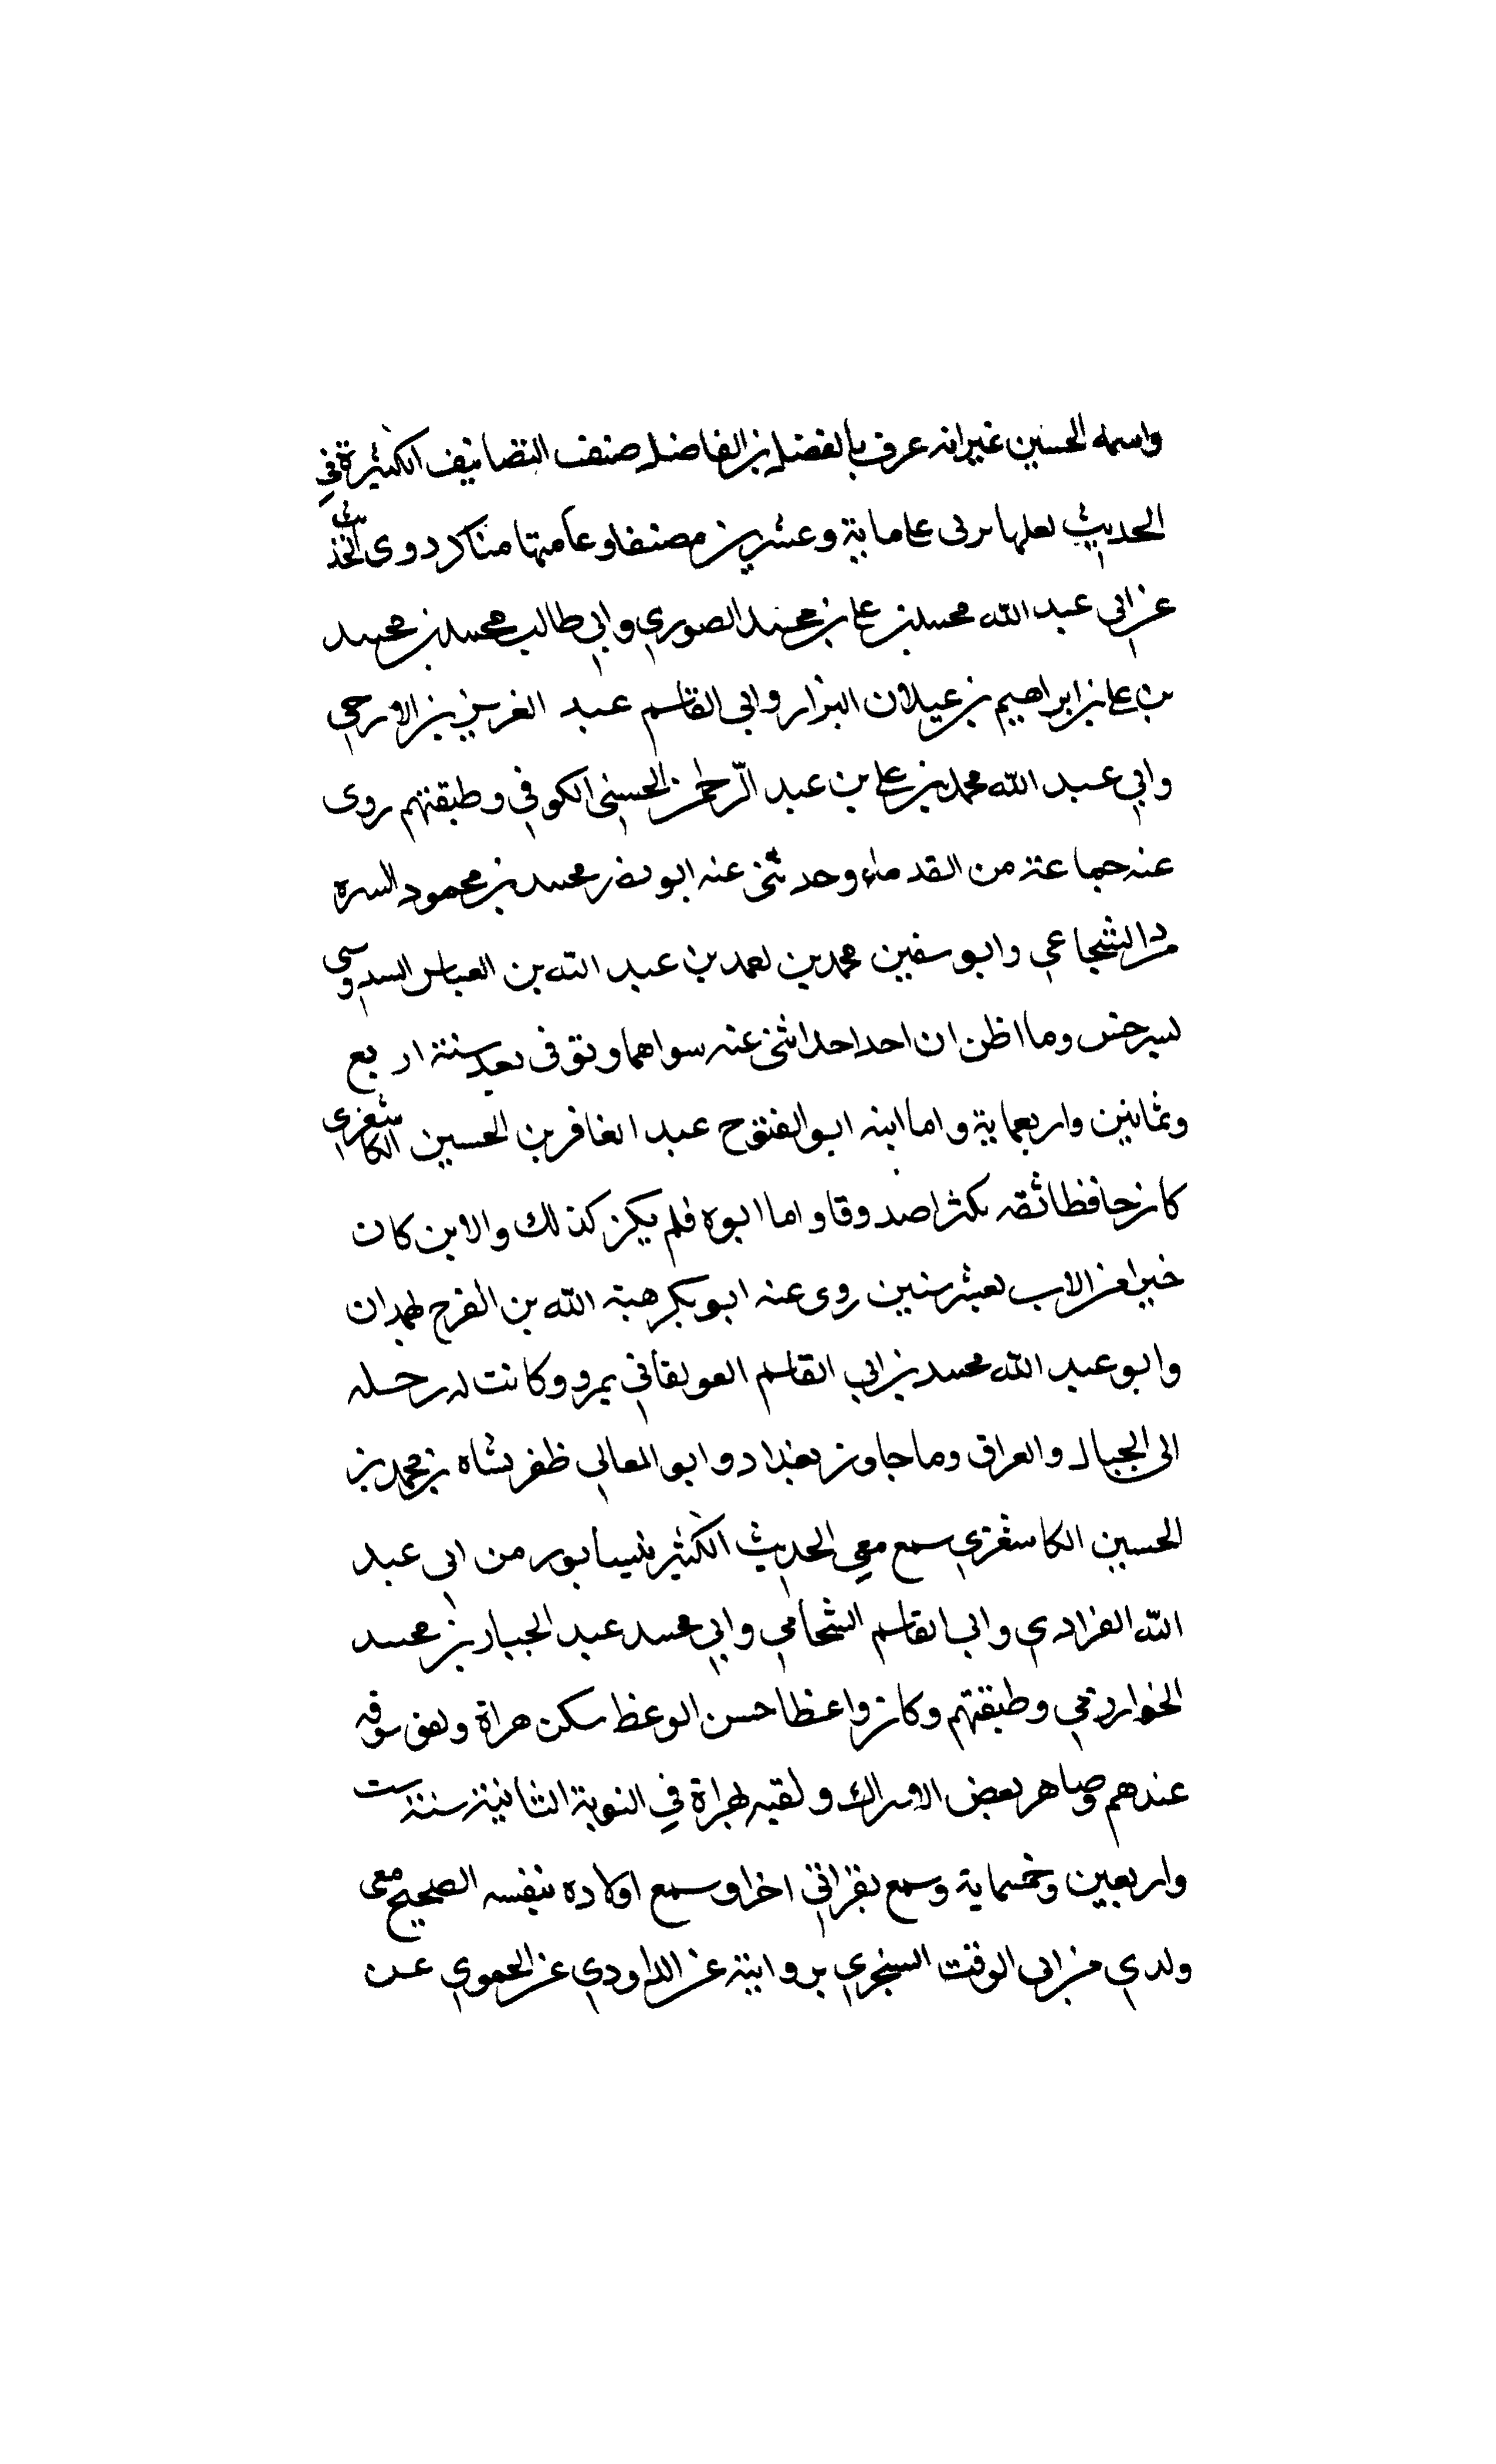 واسمه الحسين غير انه عرف بالفضل بن الفاضل صنف التصانيف الكثيرة في
الحديث لعلها تربى على ماية وعشرين مصنفا وعامتها مناكر روى الحديث
عن ابي عبد الله محمد بن على بن محمد الصوري وابي طالب محمد بن محمد
بن على بن ابراهيم بن غيلان البزار وابي القاسم عبد العزيز بن الازجي
وابي عبد الله محمد بن على بن عبد الرحمن الحسني الكوفي وطبقتهم روى
عنه جماعة من القدماء وحدثنى عنه ابو نصر محمد بن محمود السره
مرد الشجاعي وابو سفين محمد بن احمد بن عبد الله بن العباس السدوسي
بسرخس وما اظن ان احدا حدثنى عنه سواهما وتوفى بعد سنة اربع
وثمانين واربعماية واما ابنه ابو الفتوح عبد الغافر بن الحسين الكاشغري
كان حافظا ثقه مكثرا صدوقا واما ابوه فلم يكن كذلك والابن كان
خيرا من الاب بعشر سنين روى عنه ابو بكر هبة الله بن الفرج بهمدان
وابو عبد الله محمد بن ابي القاسم العولقاني بمرو وكانت له رحله
الى الجبال والعراق وما جاوز بغداد وابو المعالي ظفرشاه بن محمد بن
الحسين الكاشغري سمع معي الحديث الكثير بنيسابور من ابى عبد
الله الفراوي وابي القاسم الشحامي وابي محمد عبد الجبار بن محمد
الخواري وطبقتهم وكان واعظا حسن الوعظ سكن هراة ونفق سوقه
عندهم وصاهر بعض الاتراك ولقيه بهراة في النوبة الثانية سنة ست
واربعين وخمسماية وسمع بقراتي اخرا وسمع اولاده بنفسه الصحيح معى
ولدي من ابى الوقت السنجري بروايته عن الداودي عن الحموي عن